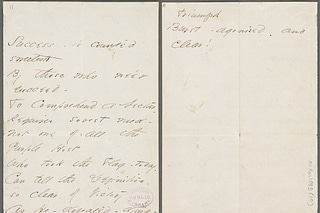 Success - is counted
sweetest
By those who ne'er
succeed -
To Comprehend a Nectar
Requires sorest need -
Not one of all the
Purple Host
Who took the Flag - today,
Can tell the Definition
so clear, of Victory
As He - defeated - dying -
triumph
Burst agonized and
Clear!